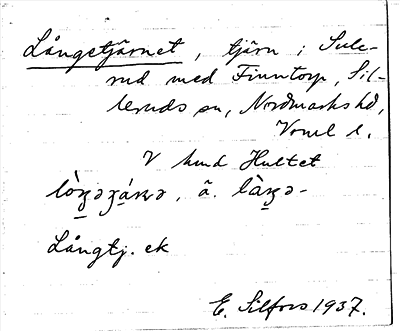 Långetjärnet, tjärn i Sule-
rud med Finntorp, Sil-
leruds sn, Nordmarks hd,
Värml l.
V km d Hultet
lòŋəʒá̤ɳə, ã. làŋə-
Långtj. ek
E. Silfors 1937.